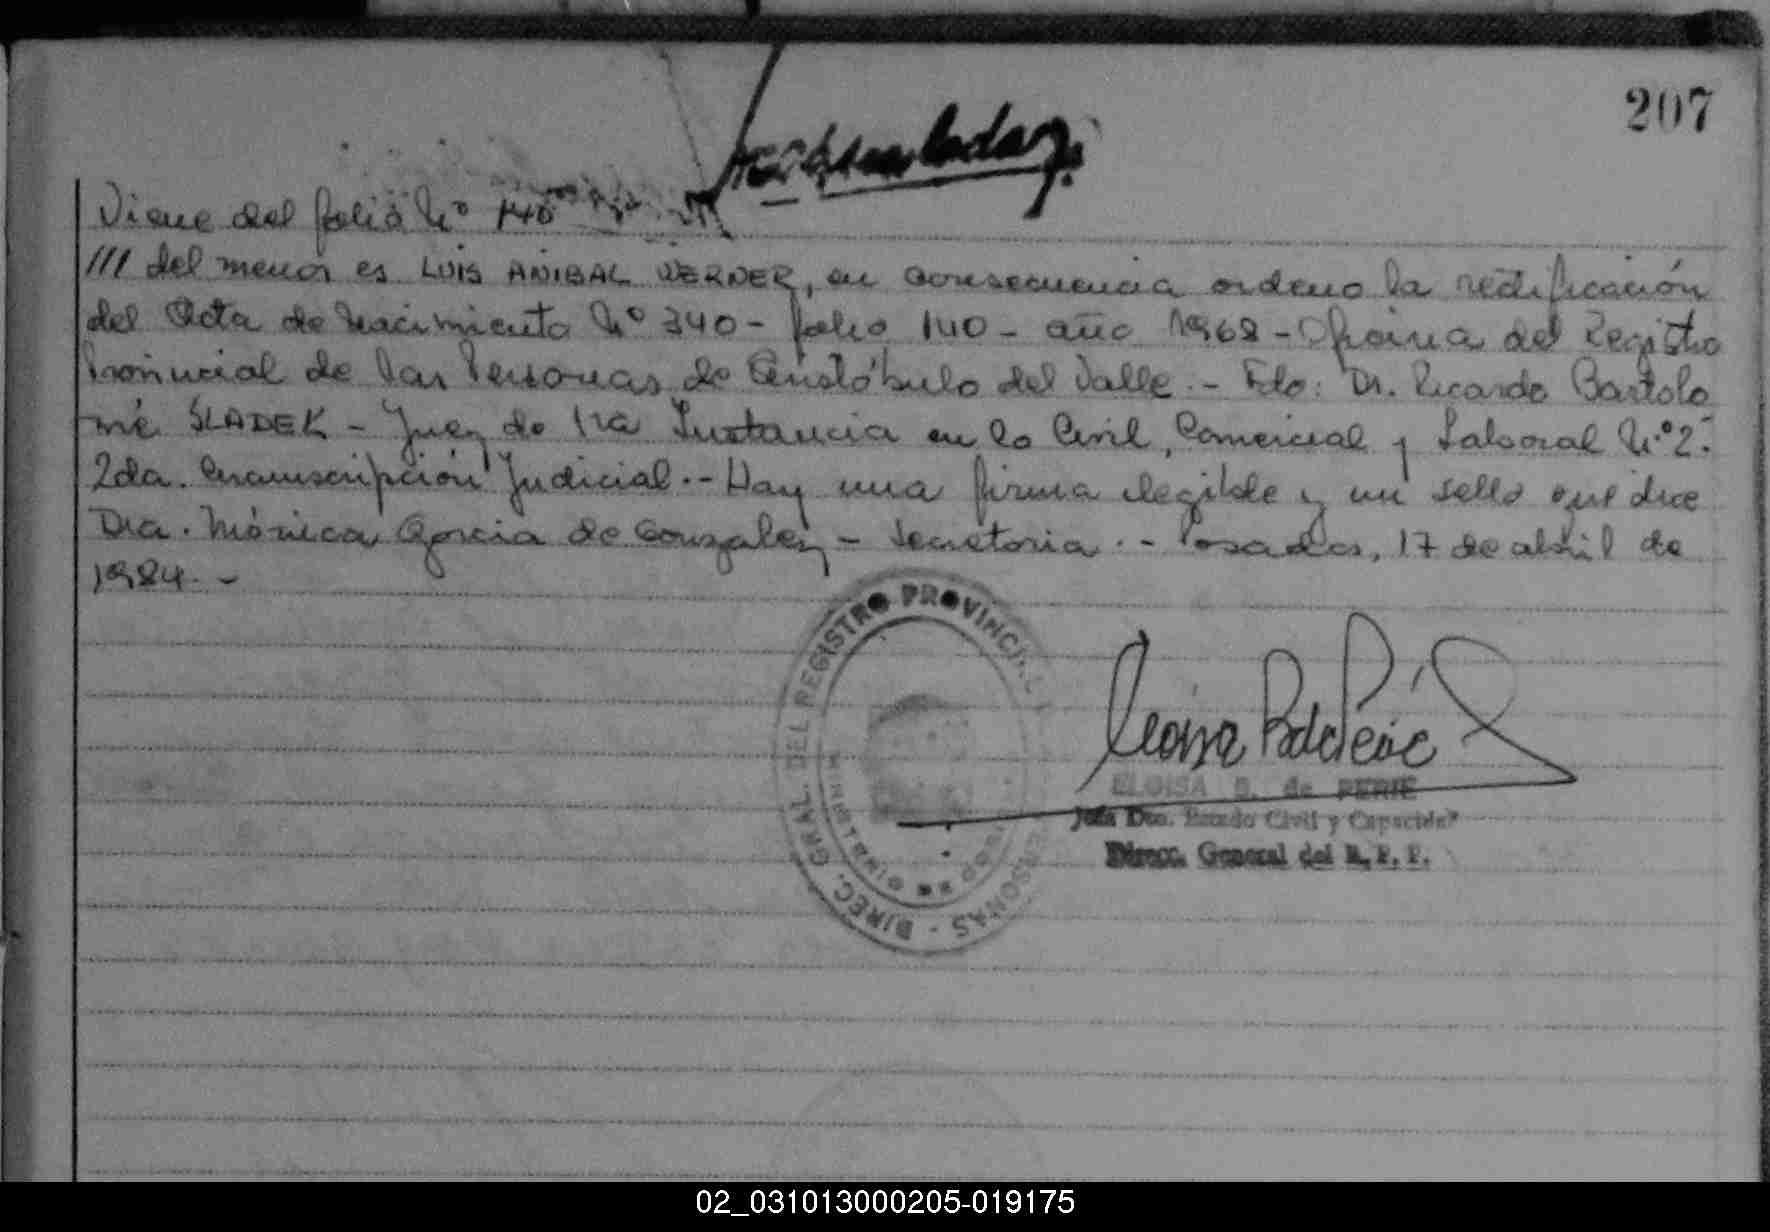 207
Viene del folio Nº 140
/// del menor es LUIS ANIBAL WERNER, en consecuencia ordeno la rectificación
del Acta de Nacimiento Nº 340 - folio 140 - año 1968 - Oficina del Registro
Provincial de las Personas de Aristóbulo del Valle.- Fdo: Dr. Ricardo Bartolo
mé SLADEK - Juez de 1ra Instancia en lo Civil, Comercial y Laboral N.º 2.-
2da. Circunscripción Judicial.- Hay una firma ilegible y un sello que dice
Dra. Mónica García de Gonzalez - Secretaria.- Posadas, 17 de abril de
1984.-
DIREC. GRAL. DEL REGISTRO PROVINCIAL PERSONAS
MINISTERIO DE GOBIERNO
ELOISA B. de PERIE
Jefa Dto. Estado Civil y Capacidad
Direcc. General del R. P. P.
02_031013000205-019175